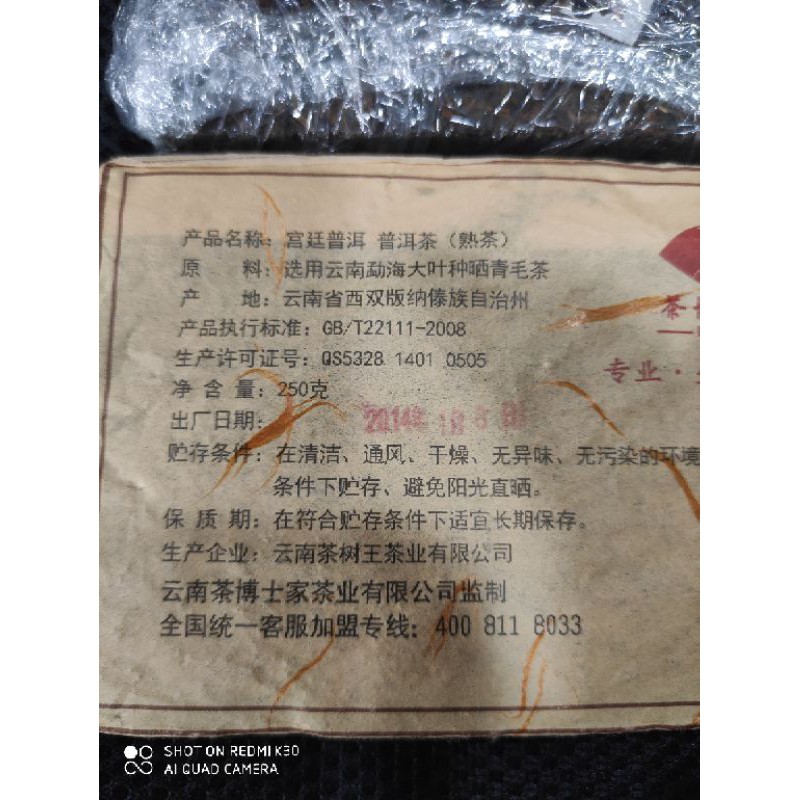 产品名称：宫廷普洱 普洱茶（熟茶）
原 料：选用云南勐海大叶种晒青毛茶
产 地：云南省西双版纳傣族自治州
产品执行标准：GB/T22111-2008
生产许可证号：QS5328 1401 0505
净 含 量：250克
出厂日期：2014年 1月 6日
贮存条件：在清洁、通风、干燥、无异味、无污染的环境
条件下贮存、避免阳光直晒。
保 质 期：在符合贮存条件下适宜长期保存。
生产企业：云南茶树王茶业有限公司
云南茶博士家茶业有限公司监制
全国统一客服加盟专线：400 811 8033
茶
专业·
SHOT ON REDMI K30
AI QUAD CAMERA